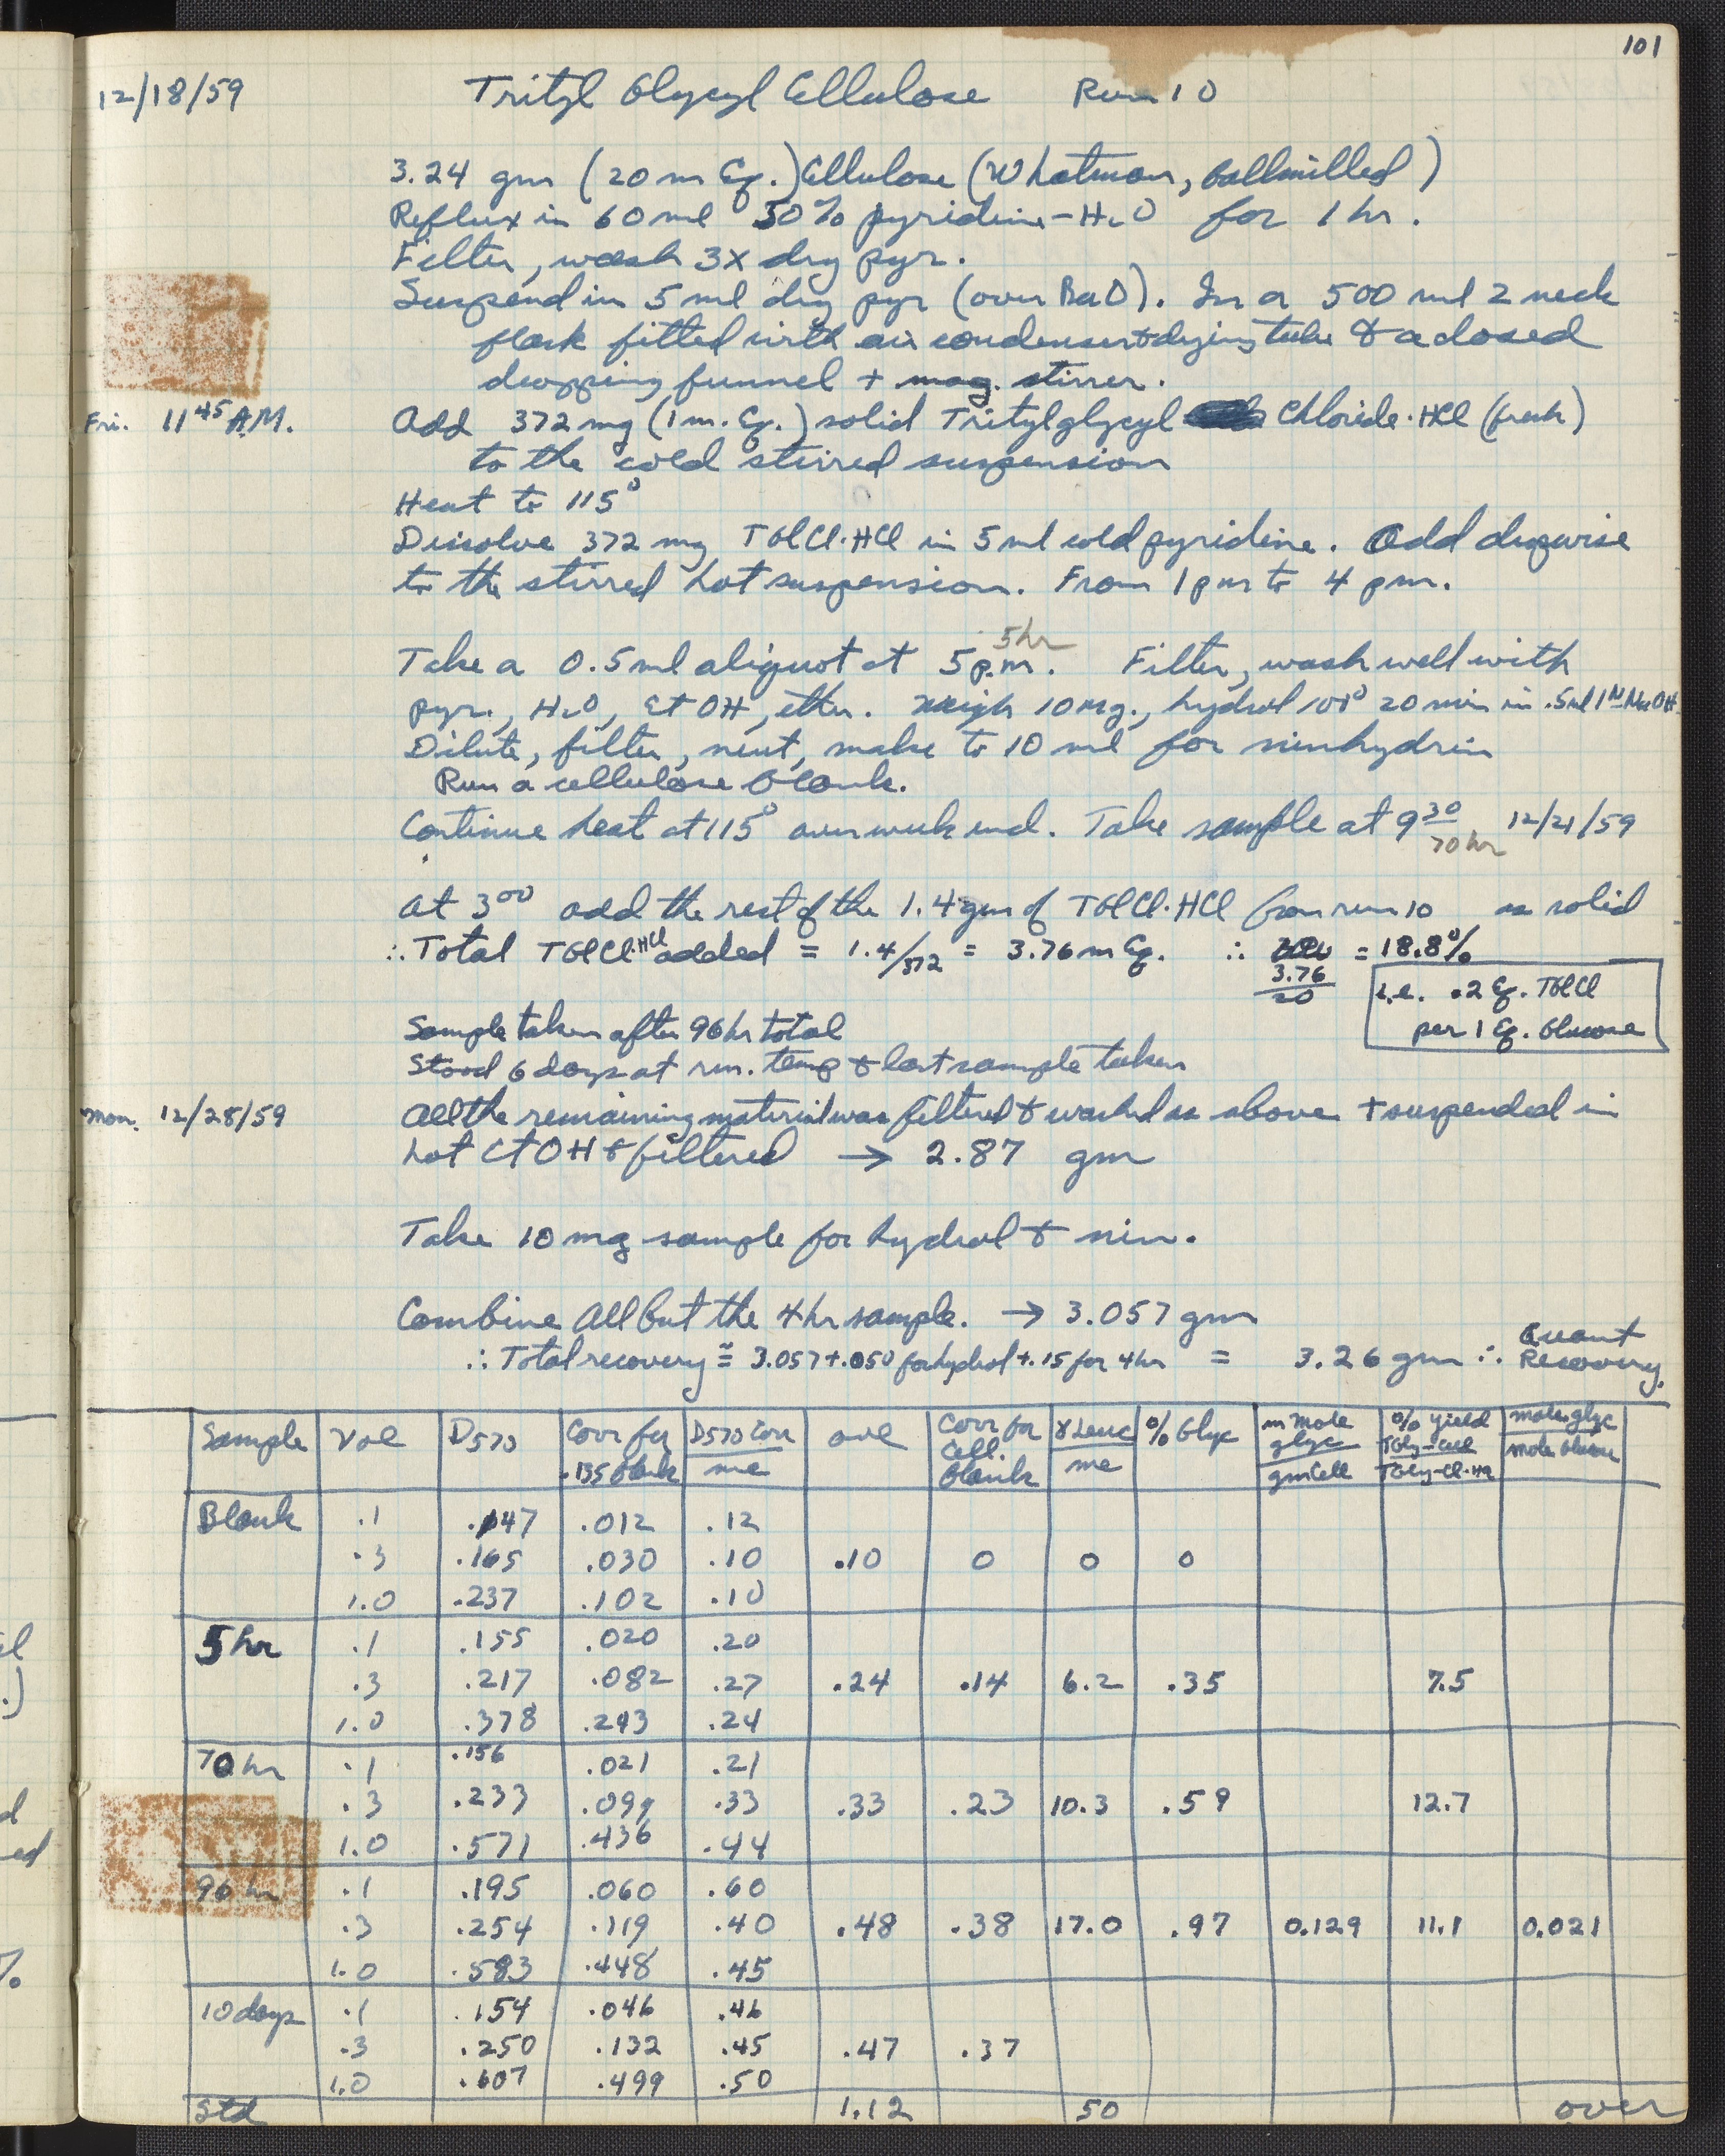 101
12/18/59 Trityl Glycyl Cellulose Run 10
3.24 gm (20 m Eq.) Cellulose (Whatman, ballmilled)
Reflux in 60 ml 50% pyridine-H2O for 1 hr.
Filter, wash 3x dry pyr.
Suspend in 5 ml dry pyr (over BaO). In a 500 ml 2 neck
flask fitted with air condenser + drying tube & a closed
dropping funnel + mag. stirrer.
Fri. 11 45 A.M. Add 372 mg (1 m. Eq.) solid Tritylglycyl Chloride·HCl (fresh)
to the cold stirred suspension
Heat to 115°
Dissolve 372 mg TGlCl·HCl in 5 ml cold pyridine. Add dropwise
to the stirred hot suspension. From 1 pm to 4 pm.
5 hr
Take a 0.5 ml aliquot at 5 p.m. Filter, wash well with
pyr., H2O, EtOH, ether. Weigh 10 mg., hydrol 100° 20 min in .5 ml 1N NaOH
Dilute, filter, neut, make to 10 ml for ninhydrin
Run a cellulose blank.
Continue heat at 115° over week end. Take sample at 9 30 12/21/59
70 hr
At 3 00 add the rest of the 1.4 gm of TGlCl·HCl from run 10 as solid
∴ Total TGlCl·HCl added = 1.4/372 = 3.76 m Eq. ∴ 3.76/20 = 18.8%
i.e. .2 Eq. TGlCl
per 1 Eq. Glucose
Sample taken after 96 hr total
Stood 6 days at rm. temp & last sample taken
Mon. 12/28/59 All the remaining material was filtered & washed as above + suspended in
hot EtOH & filtered → 2.87 gm
Take 10 mg sample for hydrol & nin.
Combine All But the 4 hr sample. → 3.057 gm
∴ Total recovery ≅ 3.057 + .050 for hydrol + .15 for 4 hr = 3.26 gm ∴ Quant
Recovery.
Sample Vol D570 Corr for .135 blank D570 Corr/ml ave Corr for Cell. blank γ Leuc/ml % Glyc m Mole glyc/gm Cell % yield TGly-Cell/TGly-Cl·HCl mole glyc/mole Glucose
Blank .1 .147 .012 .12
.3 .165 .030 .10 .10 0 0 0
1.0 .237 .102 .10
5 hr .1 .155 .020 .20
.3 .217 .082 .27 .24 .14 6.2 .35 7.5
1.0 .378 .243 .24
70 hr .1 .156 .021 .21
.3 .233 .099 .33 .33 .23 10.3 .59 12.7
1.0 .571 .436 .44
96 hr .1 .195 .060 .60
.3 .254 .119 .40 .48 .38 17.0 .97 0.129 11.1 0.021
1.0 .583 .448 .45
10 days .1 .154 .046 .46
.3 .250 .132 .45 .47 .37
1.0 .607 .499 .50
Std 1.12 50 over